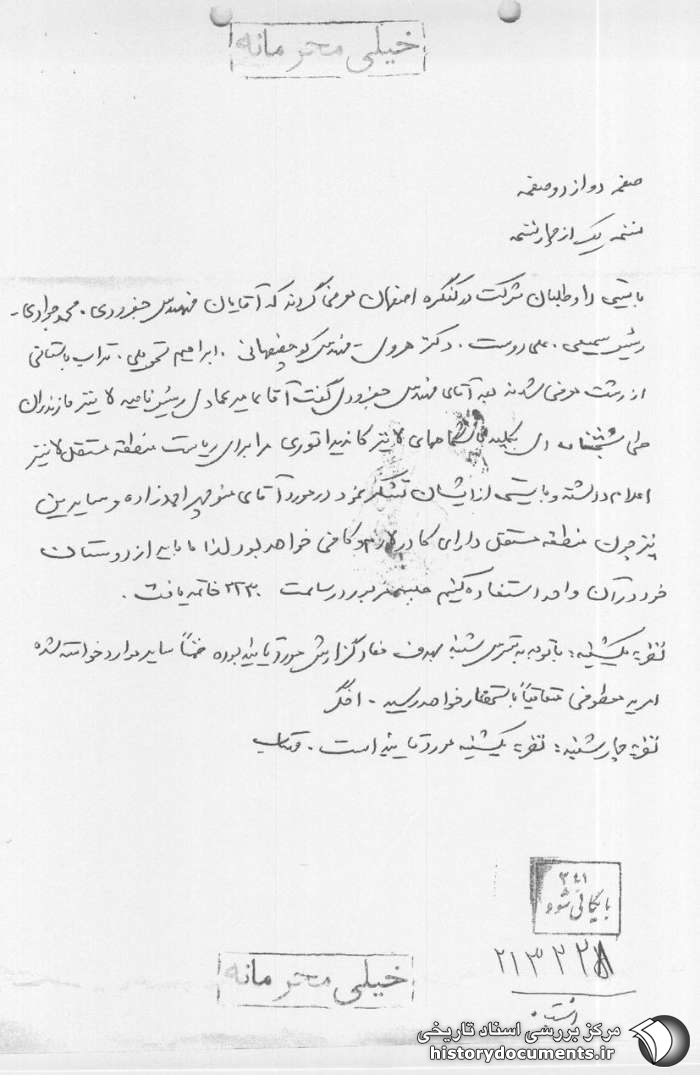 خیلی محرمانه
صفحه دو از دو صفحه
نسخه یک از چهار نسخه
بایستی داوطلبان شرکت در کنگره اصفهان معرفی گردند که آقایان مهندس جفرودی، محمد جوادی،
رئیس سمیعی، علی دوست، دکتر هروی، مهندس کوچصفهانی، ابراهیم تحویلی، تراب باستانی
از رشت معرفی شدند بعد آقای مهندس جفرودی گفت آقای امیر عمادی رئیس ناحیه لاینز مازندران
طی بخشنامه ای بکلیه باشگاههای لاینز کاندیداتوری مرا برای ریاست منطقه مستقل لاینز
اعلام داشته و بایستی از ایشان تشکر نمود در مورد آقای منوچهر احمدزاده و سایرین
نیز چون منطقه مستقل دارای کادر لازم و کافی خواهد بود لذا ما باید از دوستان
خود در آن واحد استفاده کنیم جلسه مزبور در ساعت ۲۲۳۰ خاتمه یافت.
نظریه یکشنبه: با توجه به دسترسی شنبه بهدف مفاد گزارش مورد تایید بوده ضمناً سایر موارد خواسته شده
امریه معطوفی متعاقباً باستحضار خواهد رسید. افگر
نظریه چهارشنبه: نظریه یکشنبه مورد تایید است.
۳۴۱
بایگانی شود
۲۱۳۲۲۸
خیلی محرمانه
مرکز بررسی اسناد تاریخی
historydocuments.ir